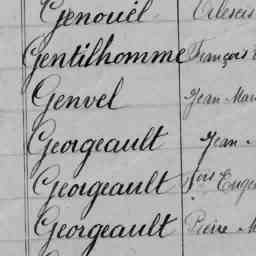 Genouël Alexis
Gentilhomme François
Genvel Jean Mari
Georgeault Jean
Georgeault Fois Eugè
Georgeault Pierre M